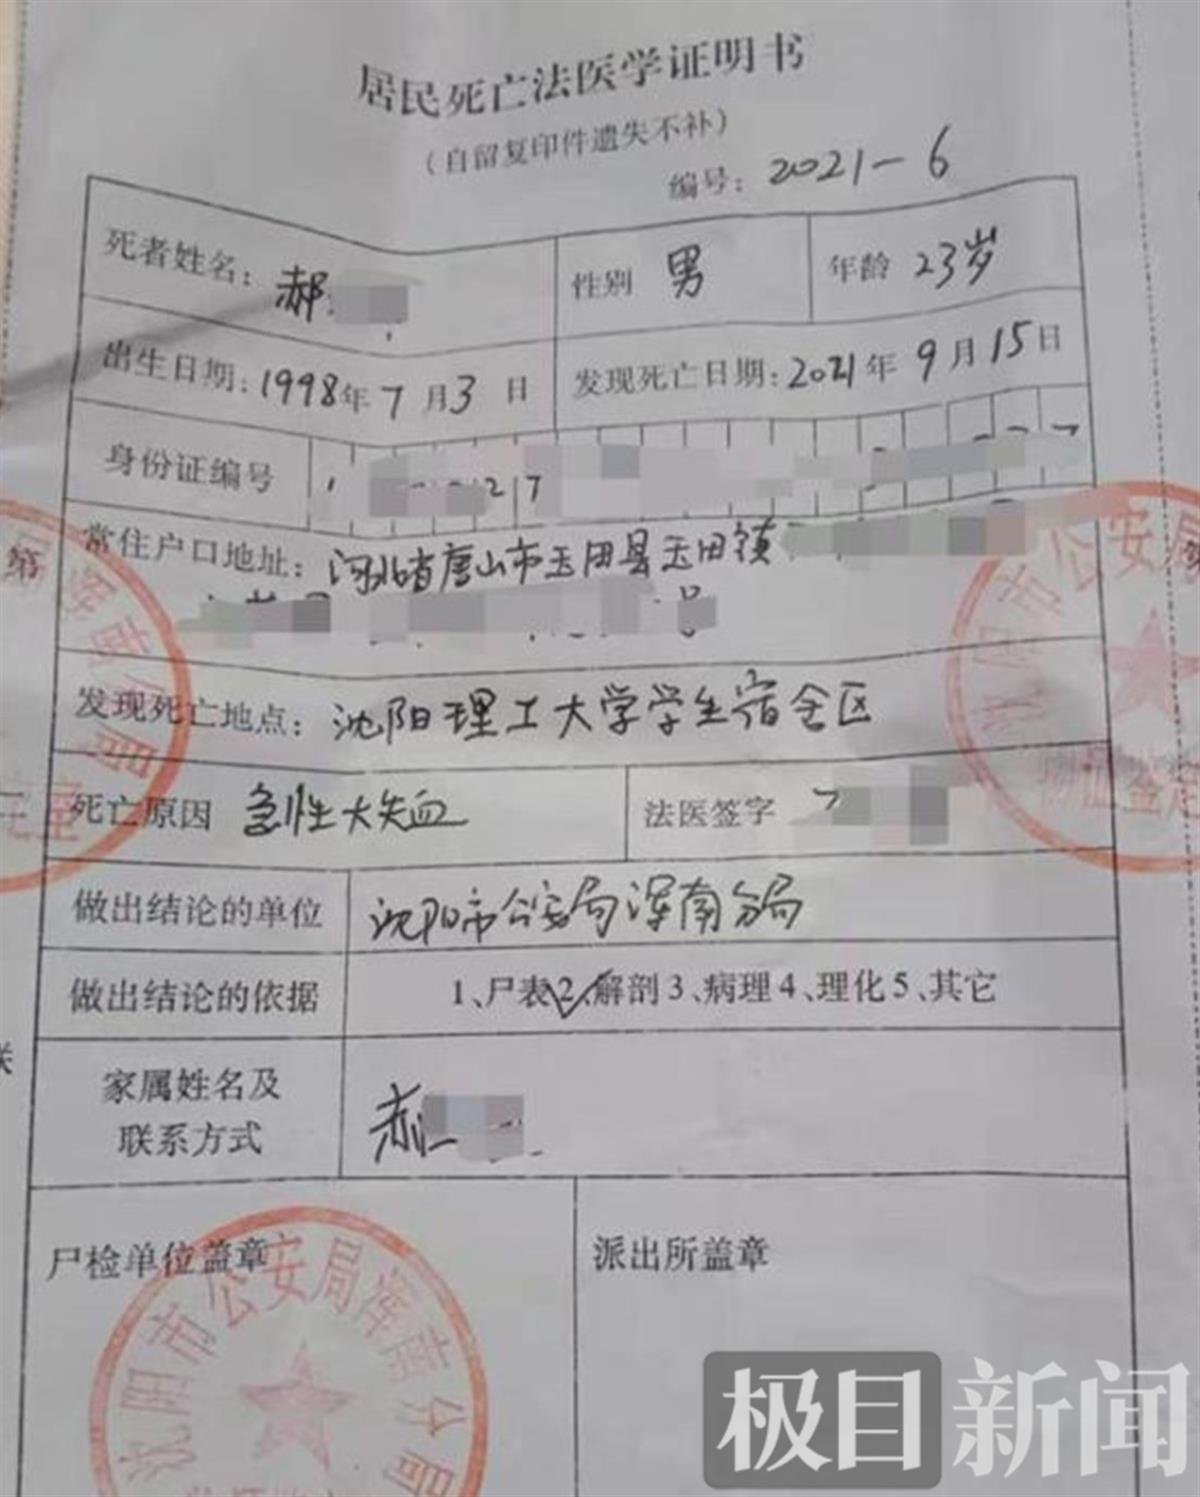 居民死亡法医学证明书
（自留复印件遗失不补）
编号：2021-6
死者姓名：郝 性别 男 年龄 23岁
出生日期：1998年7月3日 发现死亡日期：2021年9月15日
身份证编号
常住户口地址：河北省唐山市玉田县玉田镇
号
发现死亡地点：沈阳理工大学学生宿舍区
死亡原因 急性大失血 法医签字
做出结论的单位 沈阳市公安局浑南分局
做出结论的依据 1、尸表2、解剖3、病理4、理化5、其它
家属姓名及
联系方式
郝
尸检单位盖章 派出所盖章
沈阳市公安局浑南分局
第
联
极目新闻